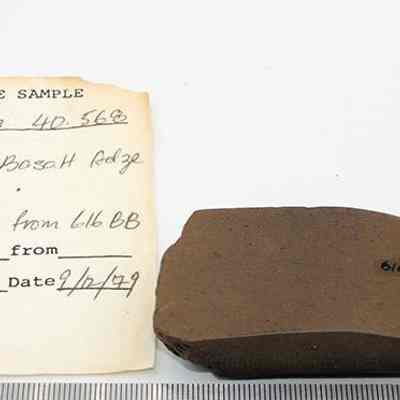 E SAMPLE
40.568
Basalt Adze
from 616 BB
from
Date 9/12/79
616